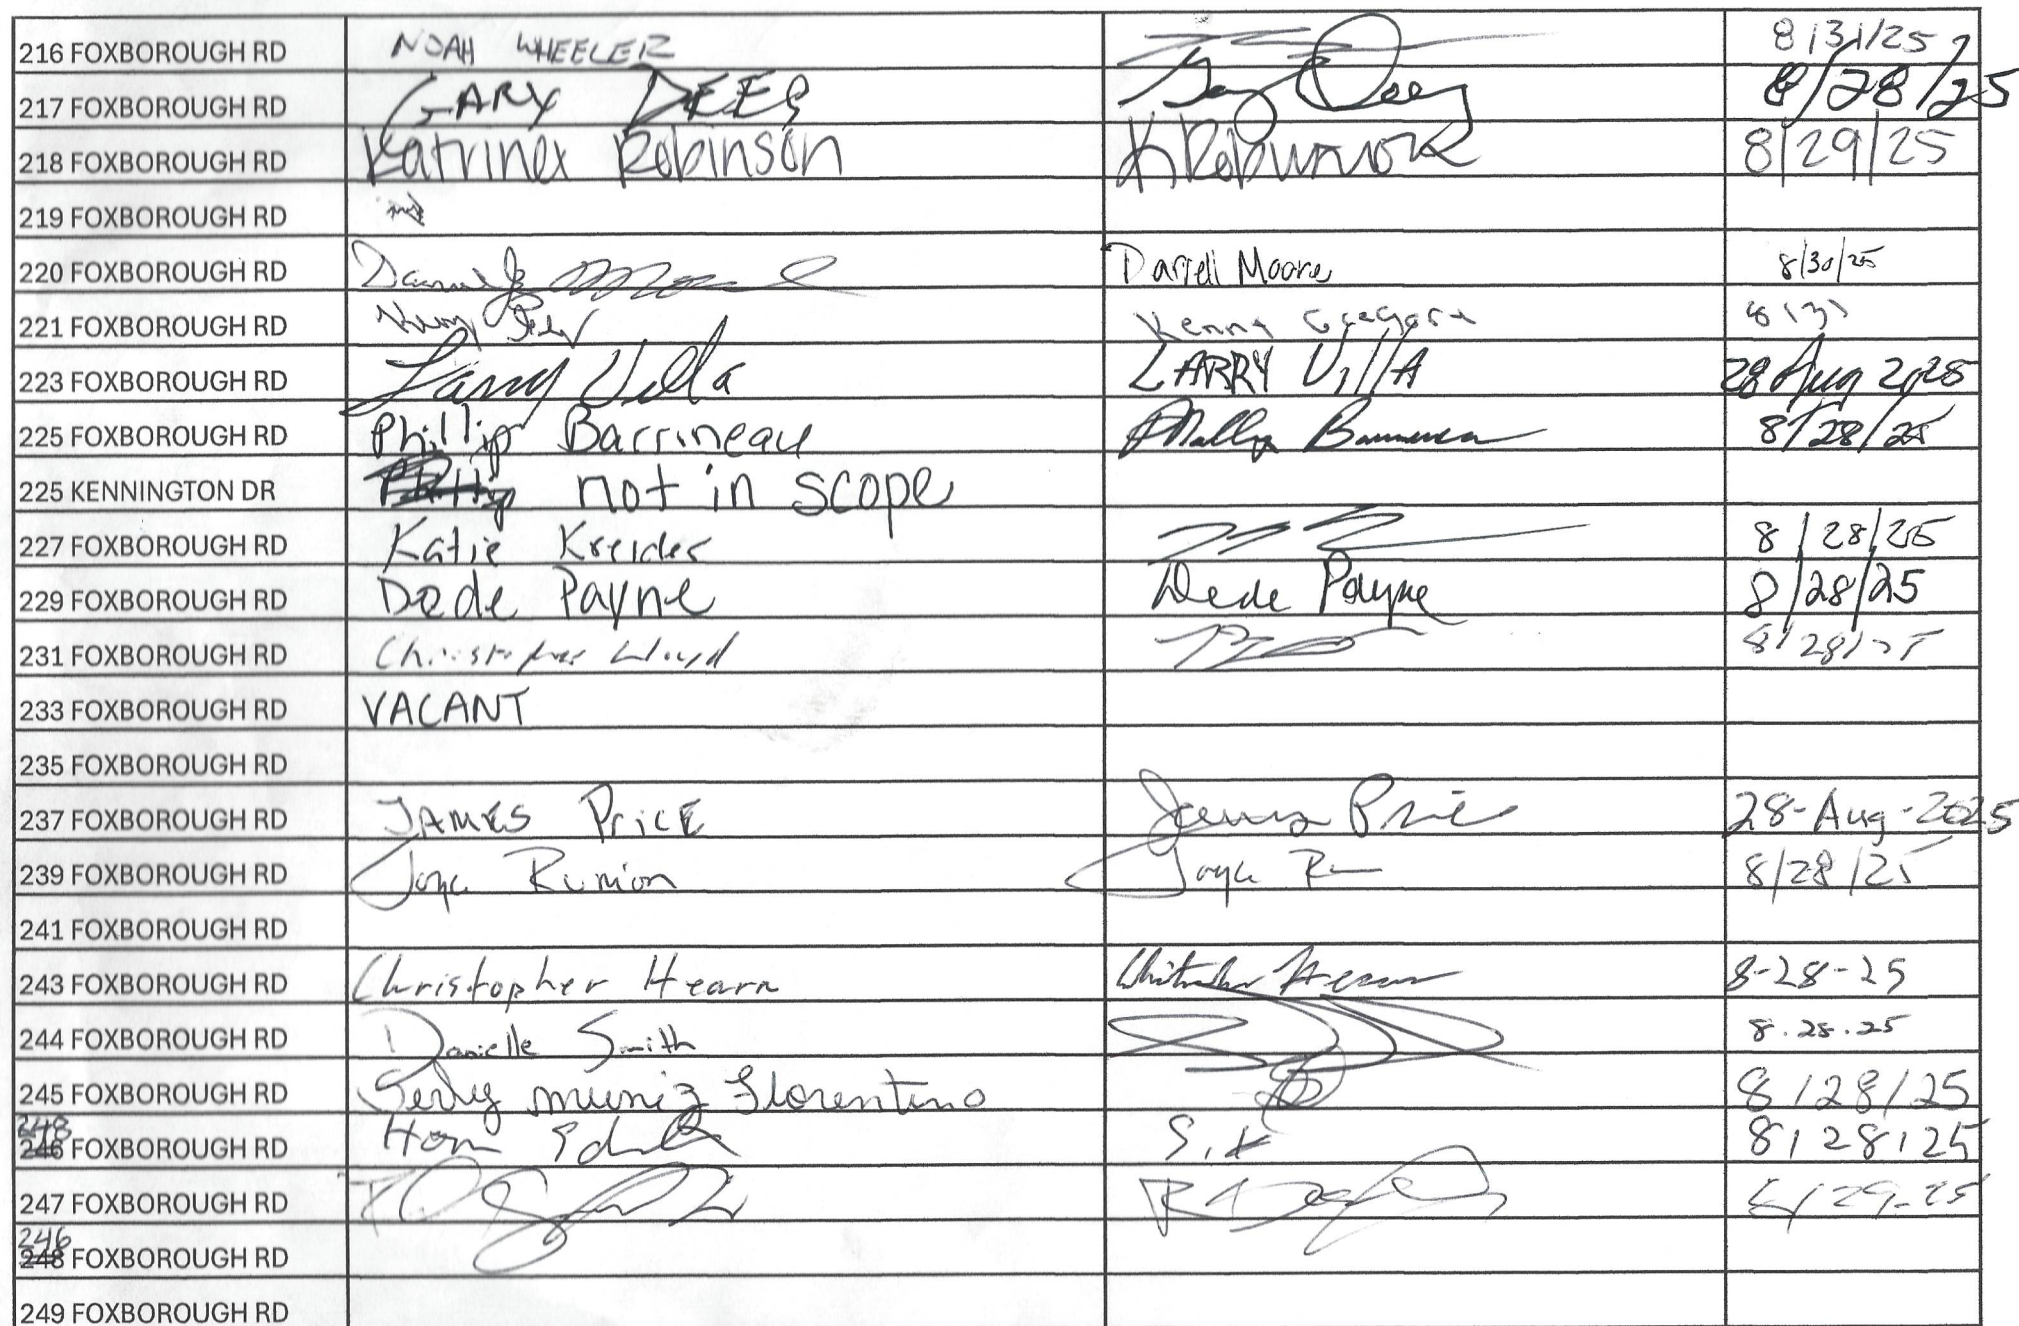 216 FOXBOROUGH RD NOAH WHEELER 8/31/25
217 FOXBOROUGH RD GARY DEES Gary Dees 8/28/25
218 FOXBOROUGH RD Katrina Robinson K Robinson 8/29/25
219 FOXBOROUGH RD
220 FOXBOROUGH RD Darrell Moore 8/30/25
221 FOXBOROUGH RD Kenny Gregory 8/31
223 FOXBOROUGH RD Larry Villa LARRY VillA 28 Aug 2025
225 FOXBOROUGH RD Phillip Barrineau Phillip Barrineau 8/28/25
225 KENNINGTON DR not in scope
227 FOXBOROUGH RD Katie Kreider 8/28/25
229 FOXBOROUGH RD Dede Payne Dede Payne 8/28/25
231 FOXBOROUGH RD Christopher Lloyd 8/28/25
233 FOXBOROUGH RD VACANT
235 FOXBOROUGH RD
237 FOXBOROUGH RD JAMES PricE James Price 28-Aug-2025
239 FOXBOROUGH RD Joye Runion Joye R 8/28/25
241 FOXBOROUGH RD
243 FOXBOROUGH RD Christopher Hearn Christopher Hearn 8-28-25
244 FOXBOROUGH RD Danielle Smith 8.28.25
245 FOXBOROUGH RD muniz Florentino 8/28/25
248
246 FOXBOROUGH RD S.K 8/28/25
247 FOXBOROUGH RD
246
248 FOXBOROUGH RD
249 FOXBOROUGH RD